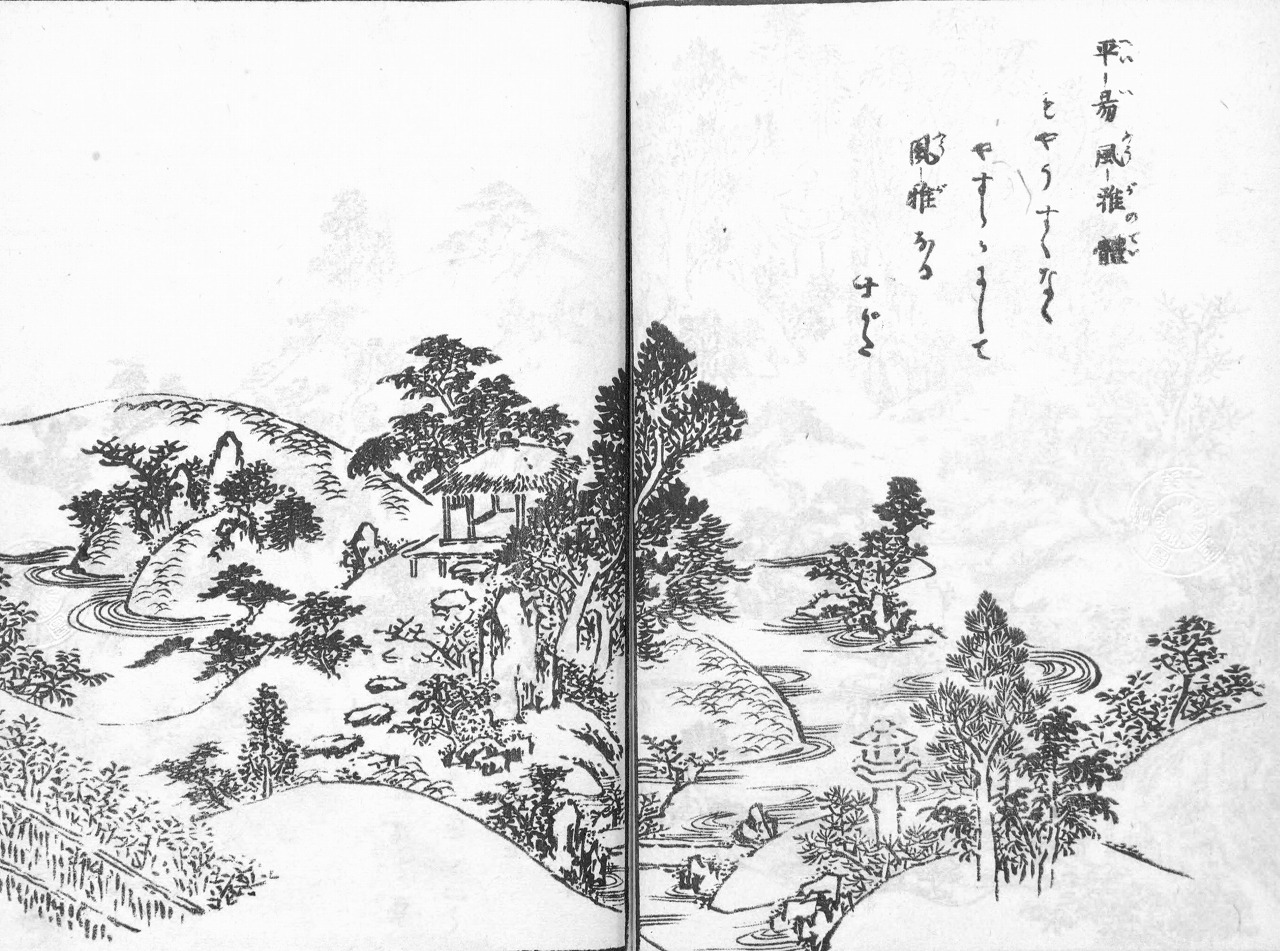 平易風雅體
もやうすくなく
やすらかにして
風雅なる